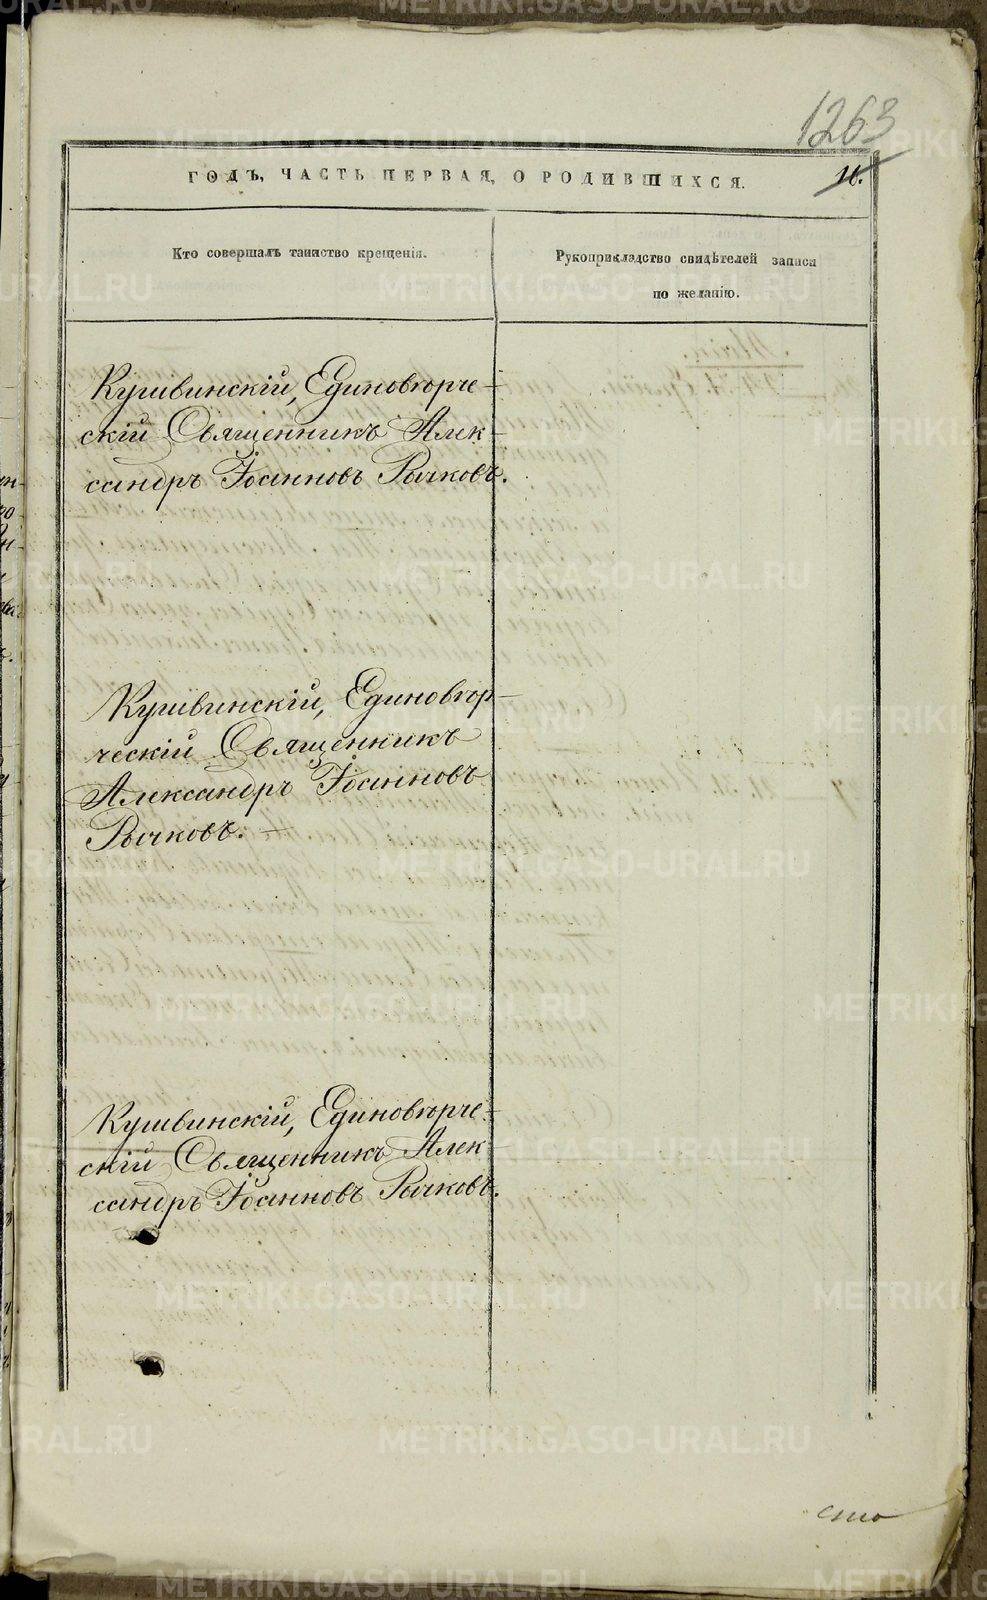 1263
ГОДЪ, ЧАСТЬ ПЕРВАЯ, О РОДИВШИХСЯ.
11.
Кто совершалъ таинство крещенія.
Рукоприкладство свидѣтелей записи
по желанію.
Кушвинскій, Единовѣрче-
скій Священникъ Алек-
сандръ Іоанновъ Рычковъ.
Кушвинскій, Единовѣр-
ческій Священникъ
Александръ Іоанновъ
Рычковъ. —
Кушвинскій, Единовѣрче-
скій Священникъ Алек-
сандръ Іоанновъ Рычковъ.
сто
METRIKI.GASO-URAL.RU